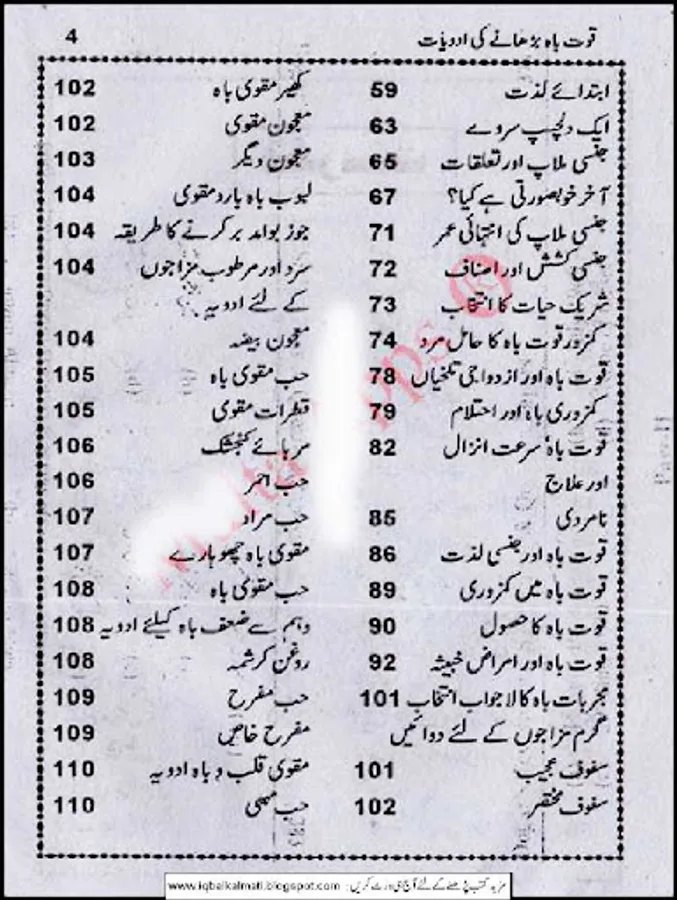 قوت باہ بڑھانے کی ادویات 4
ابتدائے لذت 59
ایک دلچسپ سروے 63
جنسی ملاپ اور تعلقات 65
آخر خوبصورتی ہے کیا؟ 67
جنسی ملاپ کی انتہائی عمر 71
جنسی کشش اور اصناف 72
شریک حیات کا انتخاب 73
کمزور قوت باہ کا حامل مرد 74
قوت باہ اور ازدواجی تلخیاں 78
کمزوری باہ اور احتلام 79
قوت باہ سرعت انزال 82
اور علاج
نامردی 85
قوت باہ اور جنسی لذت 86
قوت باہ میں کمزوری 89
قوت باہ کا حصول 90
قوت باہ اور امراض خبیثہ 92
مجربات باہ کا لاجواب انتخاب 101
گرم مزاجوں کے لئے دوائیں
سفوف عجیب 101
سفوف مختصر 102
کھیر مقوی باہ 102
معجون مقوی 102
معجون دیگر 103
لبوب باہ بارد مقوی 104
جوز بوامد بر کرنے کا طریقہ 104
سرد اور مرطوب مزاجوں 104
کے لئے ادویہ
معجون بیضہ 104
حب مقوی باہ 105
قطرات مقوی 105
مربائے کنجشک 106
حب احمر 106
حب مراد 107
مقوی باہ چھوہارے 107
حب مقوی باہ 108
وہم سے ضعف باہ کیلئے ادویہ 108
روغن کرشمہ 108
حب مفرح 109
مفرح خاص 109
مقوی قلب و باہ ادویہ 110
حب مبہی 110
مزید کتب پڑھنے کے لئے آج ہی وزٹ کریں : www.iqbalkalmati.blogspot.com